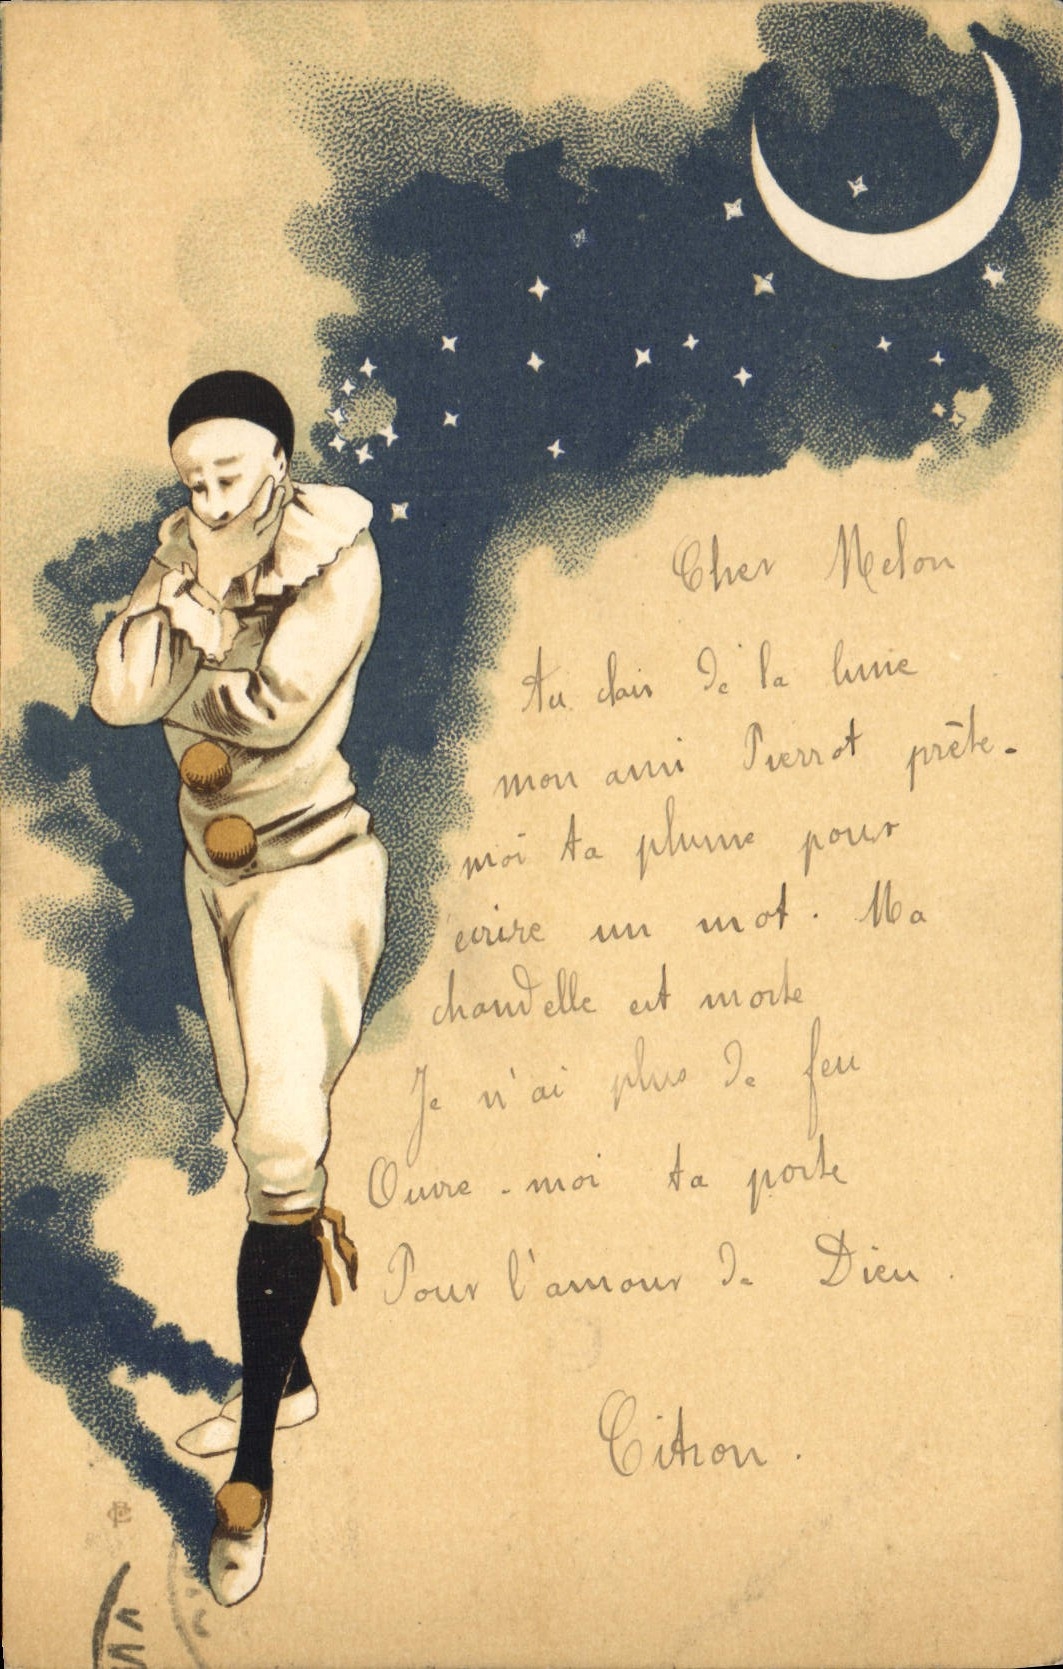 Cher Melon
Au clair de la lune
mon ami Pierrot prête-
moi ta plume pour
écrire un mot. Ma
chandelle est morte
Je n'ai plus de feu
Ouvre-moi ta porte
Pour l'amour de Dieu.
Citron.